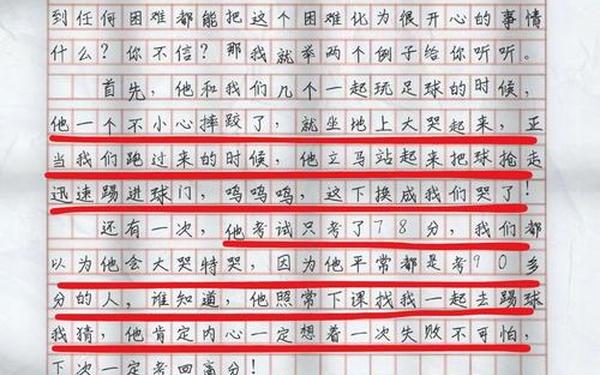 到任何困难都能把这个困难化为很开心的事情
什么?你不信?那我就举两个例子给你听听。
首先,他和我们几个一起玩足球的时候,
他一个不小心摔跤了,就坐地上大哭起来,正
当我们跑过来的时候,他立马站起来把球抢走
迅速踢进球门,呜呜呜,这下换成我们哭了!
还有一次,他考试只考了78分,我们都
以为他会大哭特哭,因为他平常都是考90多
分的人,谁知道,他照常下课找我一起去踢球
我猜,他肯定内心一定想着一次失败不可怕,
下次一定考回高分!